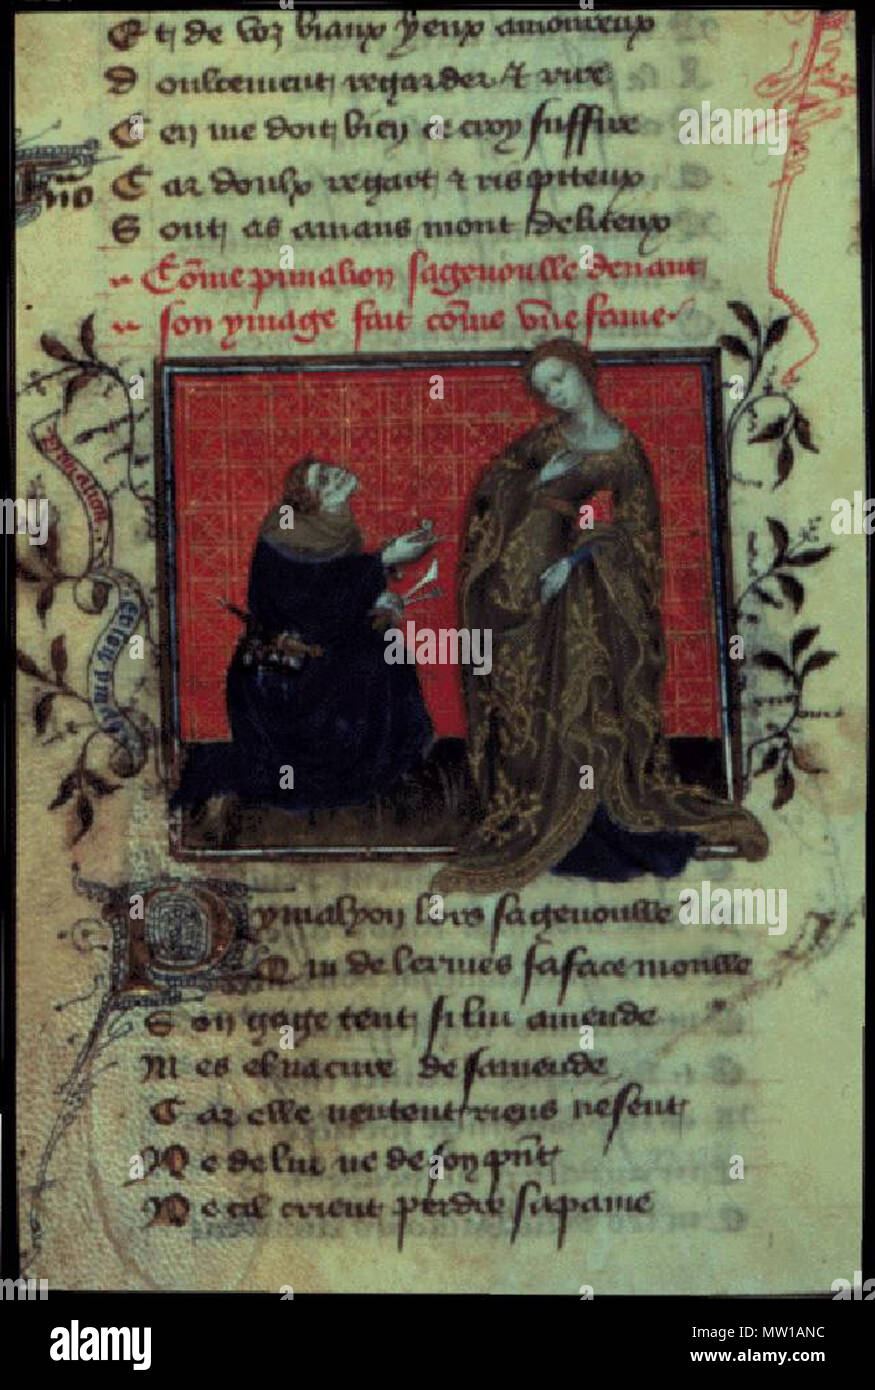 Et de voz biaux yeux amoureux
Doulcement regarder & rire
Cen me doit bien ce croy suffire
Car doulx regart & ris piteux
Sont as amans mont deliteux
Cōme pimalion sagenoulle deuant
son ymage fait cōme vne fame
Pimalion
Pymalyon lors sagenoulle
Qui de lermes sa face moulle
Son gage tent si lui amende
Mes el na cure de samende
Car elle nentent riens ne sent
Ne de lui ne de son pn̄t
Ne cil crient perdre sa paine
alamy
Image ID: MW1ANC
www.alamy.com